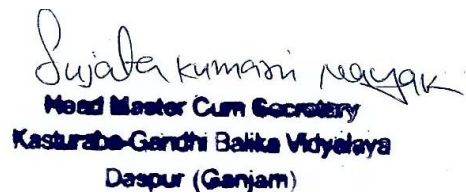 Sujata kumari nayak
Head Master Cum Secretary
Kasturaba-Gandhi Balika Vidyalaya
Daspur (Ganjam)